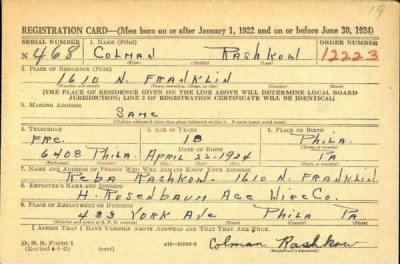 19
REGISTRATION CARD—(Men born on or after January 1, 1922 and on or before June 30, 1924)
SERIAL NUMBER 1. NAME (Print) ORDER NUMBER
N 468 COLMAN RASHKOW 12223
2. PLACE OF RESIDENCE (Print)
1610 N. FRANKLIN
[THE PLACE OF RESIDENCE GIVEN ON THE LINE ABOVE WILL DETERMINE LOCAL BOARD
JURISDICTION; LINE 2 OF REGISTRATION CERTIFICATE WILL BE IDENTICAL]
3. MAILING ADDRESS
SAME
4. TELEPHONE 5. AGE IN YEARS 6. PLACE OF BIRTH
FRE. 18 PHILA.
DATE OF BIRTH
6408 PHILA. APRIL 22-1924 PA
7. NAME AND ADDRESS OF PERSON WHO WILL ALWAYS KNOW YOUR ADDRESS
REBA RASHKOW. 1610 N. FRANKLIN
8. EMPLOYER'S NAME AND ADDRESS
H. ROSENBAUM ACE WIRE CO.
9. PLACE OF EMPLOYMENT OR BUSINESS
433 YORK AVE PHILA PA
I AFFIRM THAT I HAVE VERIFIED ABOVE ANSWERS AND THAT THEY ARE TRUE.
D. S. S. Form 1
Colman Rashkow